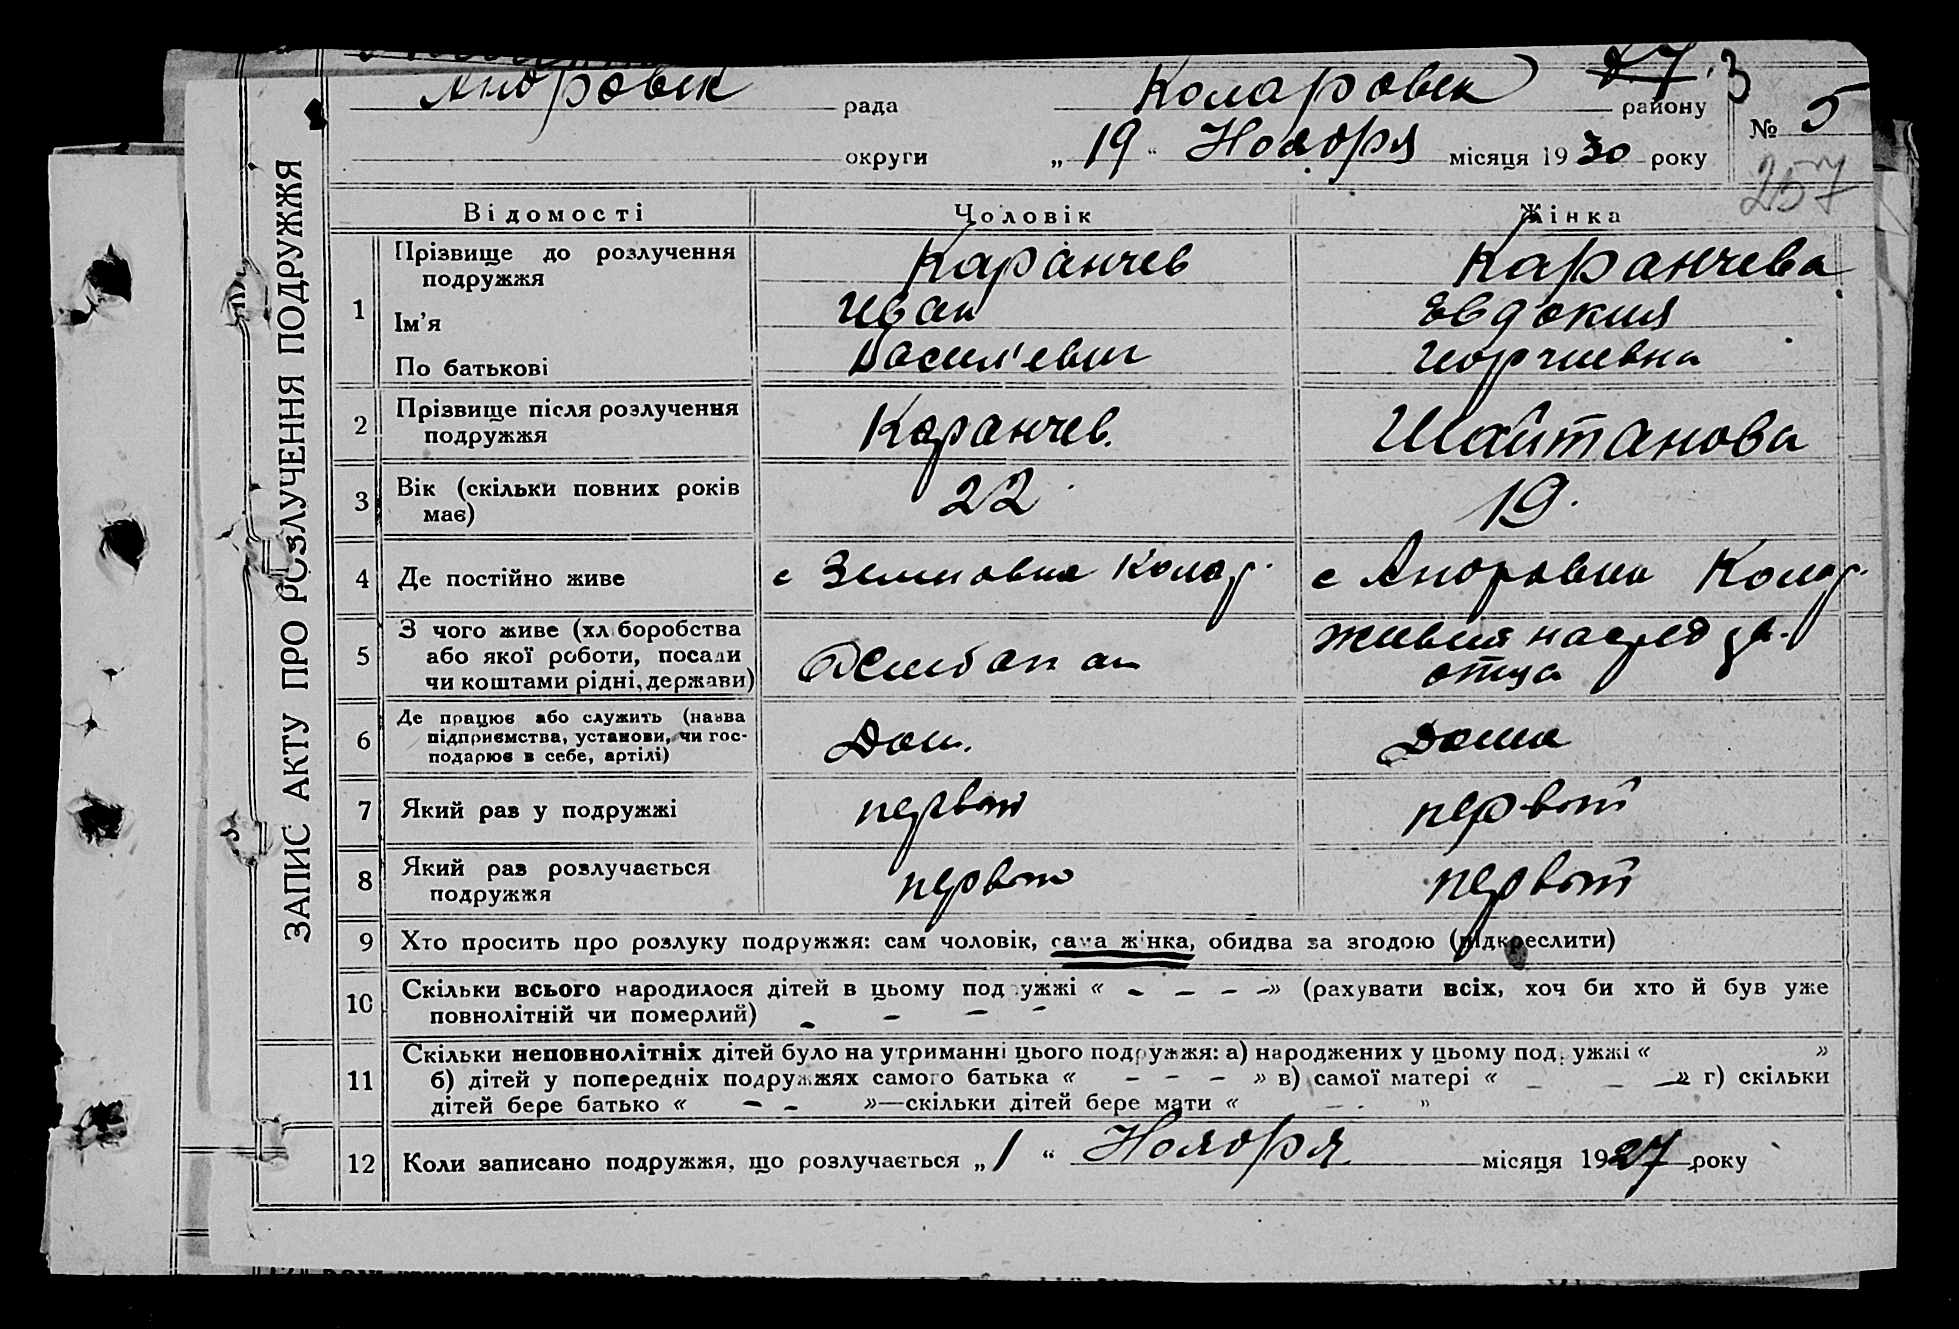 ЗАПИС АКТУ ПРО РОЗЛУЧЕННЯ ПОДРУЖЖЯ
Андровск рада Коларовск району 27.3
№ 5
округи „ 19 “ Ноября місяця 1930 року
257
Відомості Чоловік Жінка
1 Прізвище до розлучення подружжя Каранчев Каранчева
Ім’я Иван Евдокия
По батькові Василʼевич Георгиевна
2 Прізвище після розлучення подружжя Каранчев. Шайтанова
3 Вік (скільки повних років має) 22 19.
4 Де постійно живе с Колар. с Андровка Колар.
5 З чого живе (хліборобства або якої роботи, посади чи коштами рідні, держави) отца
6 Де працює або служить (назва підприємства, установи, чи господарює в себе, артілі) Дом. Дома
7 Який раз у подружжі первый первый
8 Який раз розлучається подружжя первый первый
9 Хто просить про розлуку подружжя: сам чоловік, сама жінка, обидва за згодою (підкреслити)
10 Скільки всього народилося дітей в цьому подружжі « - - - - » (рахувати всіх, хоч би хто й був уже
повнолітній чи померлий) - - - -
11 Скільки неповнолітніх дітей було на утриманні цього подружжя: а) народжених у цьому подружжі « »
б) дітей у попередніх подружжях самого батька « - - - » в) самої матері « - - - » г) скільки
дітей бере батько « - - »—скільки дітей бере мати « - - »
12 Коли записано подружжя, що розлучається „ 1 “ Ноября місяця 1927 року